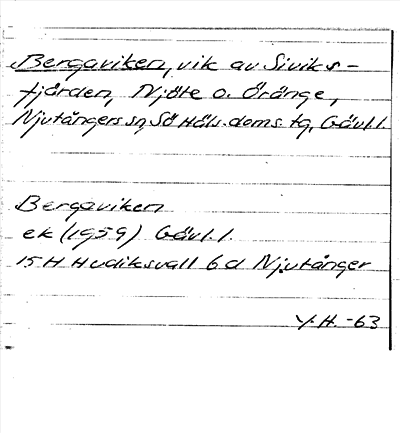 Bergaviken, vik av Siviks-
fjärden, Njöte o. Öränge,
Njutångers sn, Sö Häls. doms. tg, Gävl.l.
Bergaviken
ek (1959) Gävl.l.
15 H Hudiksvall 6 d Njutånger
Y.H. -63